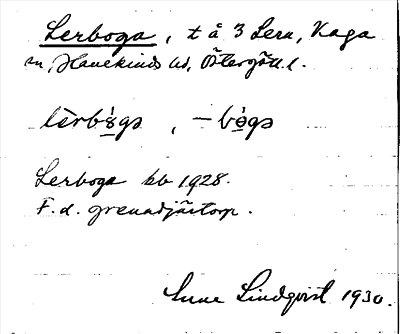 Lerboga, t å 3 Lera, Kaga
sn, Hanekinds hd, Östergötl.
lèrbo̱gs, – bo̱gs
Lerboga kb 1928.
F.d. grenadjärtorp.
Sune Lindqvist 1930.